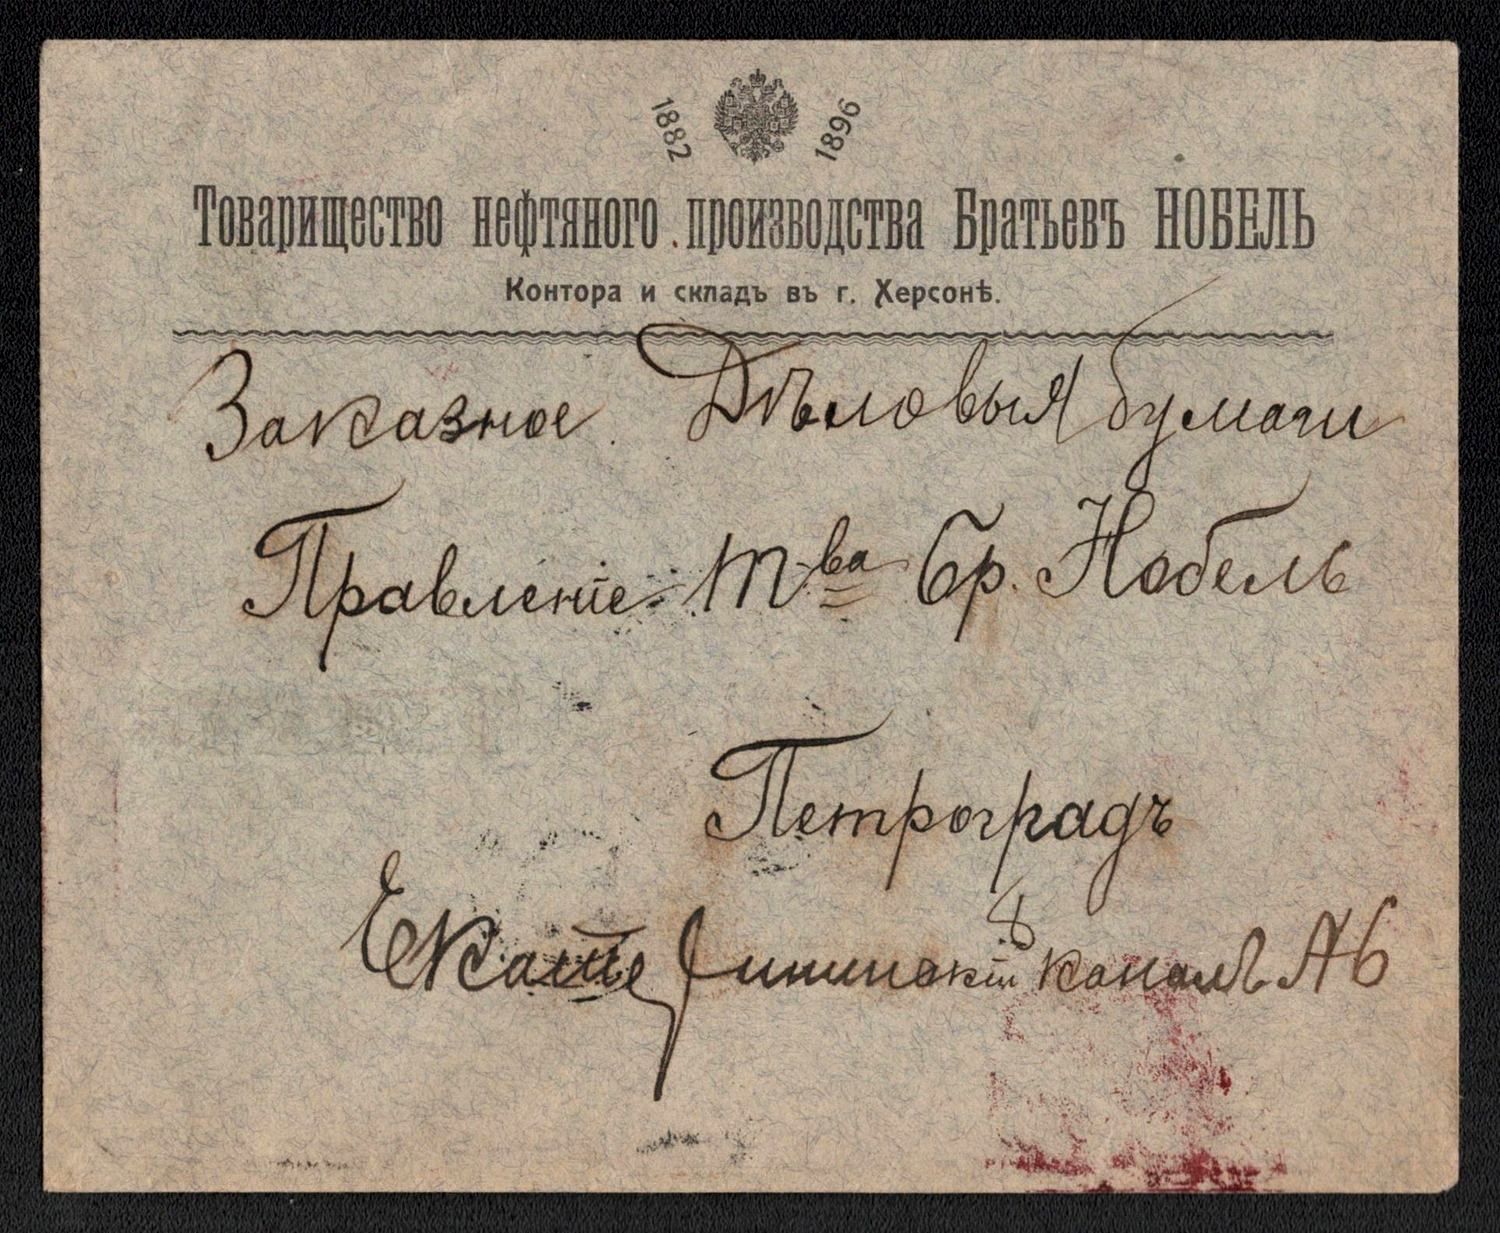 1882 1896
Товарищество нефтяного производства Братьевъ НОБЕЛЬ
Контора и складъ въ г. Херсонѣ.
Заказное. Дѣловыя бумаги
Правленіе Т-ва Бр. Нобель
Петроградъ
Екатерининскій каналъ № 6